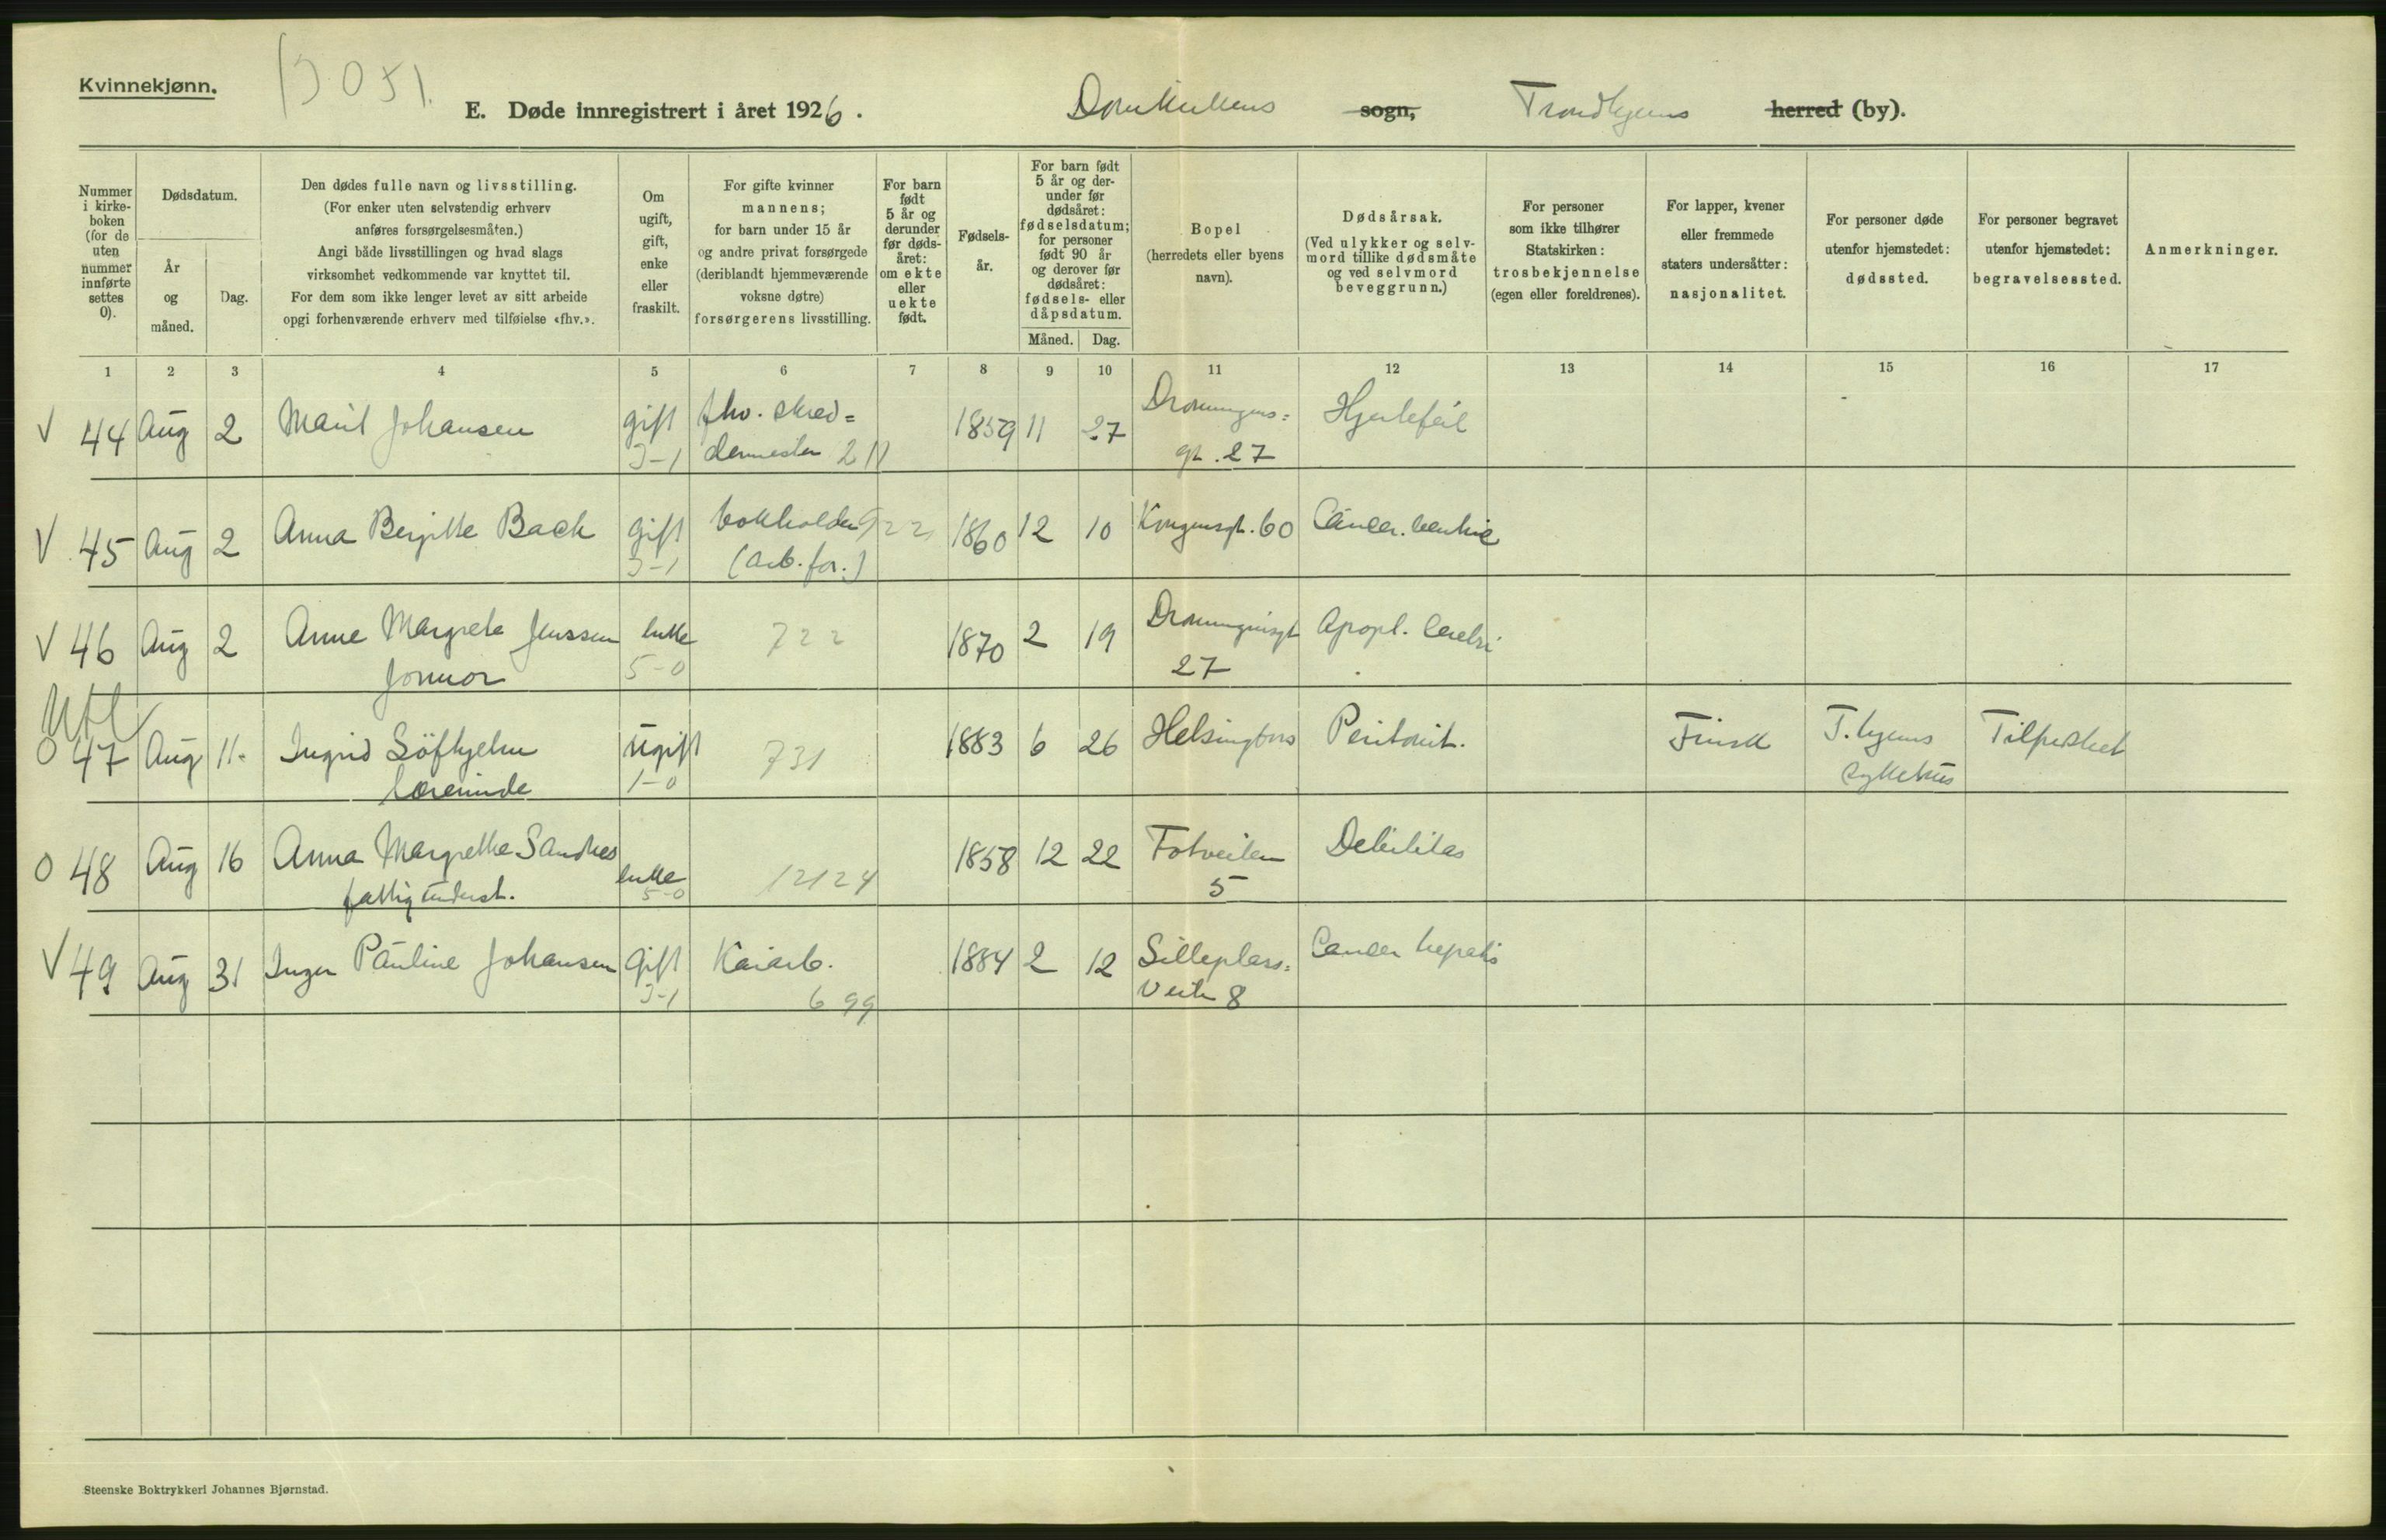 Kvinnekjønn.
E. Døde innregistrert i året 1926. Domkirkens sogn, Trondhjems herred (by).
Nummer i kirkeboken (for de uten nummer innførte settes 0).
Dødsdatum.
År og måned.
Dag.
Den dødes fulle navn og livsstilling.
(For enker uten selvstendig erhverv
anføres forsørgelsesmåten.)
Angi både livsstillingen og hvad slags
virksomhet vedkommende var knyttet til.
For dem som ikke lenger levet av sitt arbeide
opgi forhenværende erhverv med tilføielse «fhv.».
Om ugift, gift, enke eller fraskilt.
For gifte kvinner
mannens;
for barn under 15 år
og andre privat forsørgede
(deriblandt hjemmeværende
voksne døtre)
forsørgerens livsstilling.
For barn født 5 år og derunder før dødsåret: om ekte eller uekte født.
Fødselsår.
For barn født 5 år og derunder før dødsåret: fødselsdatum; for personer født 90 år og derover før dødsåret: fødsels- eller dåpsdatum.
Måned. Dag.
Bopel
(herredets eller byens
navn).
Dødsårsak.
(Ved ulykker og selvmord tillike dødsmåte og ved selvmord beveggrunn.)
For personer
som ikke tilhører
Statskirken:
trosbekjennelse
(egen eller foreldrenes).
For lapper, kvener
eller fremmede
staters undersåtter:
nasjonalitet.
For personer døde
utenfor hjemstedet:
dødssted.
For personer begravet
utenfor hjemstedet:
begravelsessted.
Anmerkninger.
1 2 3 4 5 6 7 8 9 10 11 12 13 14 15 16 17
V 44 Aug 2 Marit Johansen gift fhv. skred= 1859 11 27 Dronningens= Hjertefeil
3-1 dermester 211 gt. 27
V 45 Aug 2 Anna Bergitte Back gift bokholder 922 1860 12 10 Kongensgt. 60 Cancer
3-1 (arb. for.)
V 46 Aug 2 Anne Margrete Jenssen enke 722 1870 2 19 Dronningensgt Apopl. cerebri
Jonvor 5-0 27
Utl
0 47 Aug 11. Ingrid Söfhjelm ugift 731 1883 6 26 Helsingfors Peritonit. Finsk T.hjems
Lærerinde 1-0 sykehus
0 48 Aug 16 Anna Margrethe Sandnes enke 12124 1858 12 22 Fotveiten Debilitas
fattigunderst. 5-0 5
V 49 Aug 31 Inger Pauline Johansen gift Kaiarb. 1884 2 12 Silleplass= Cancer hepatis
3-1 699 Veite 8
Steenske Boktrykkeri Johannes Bjørnstad.